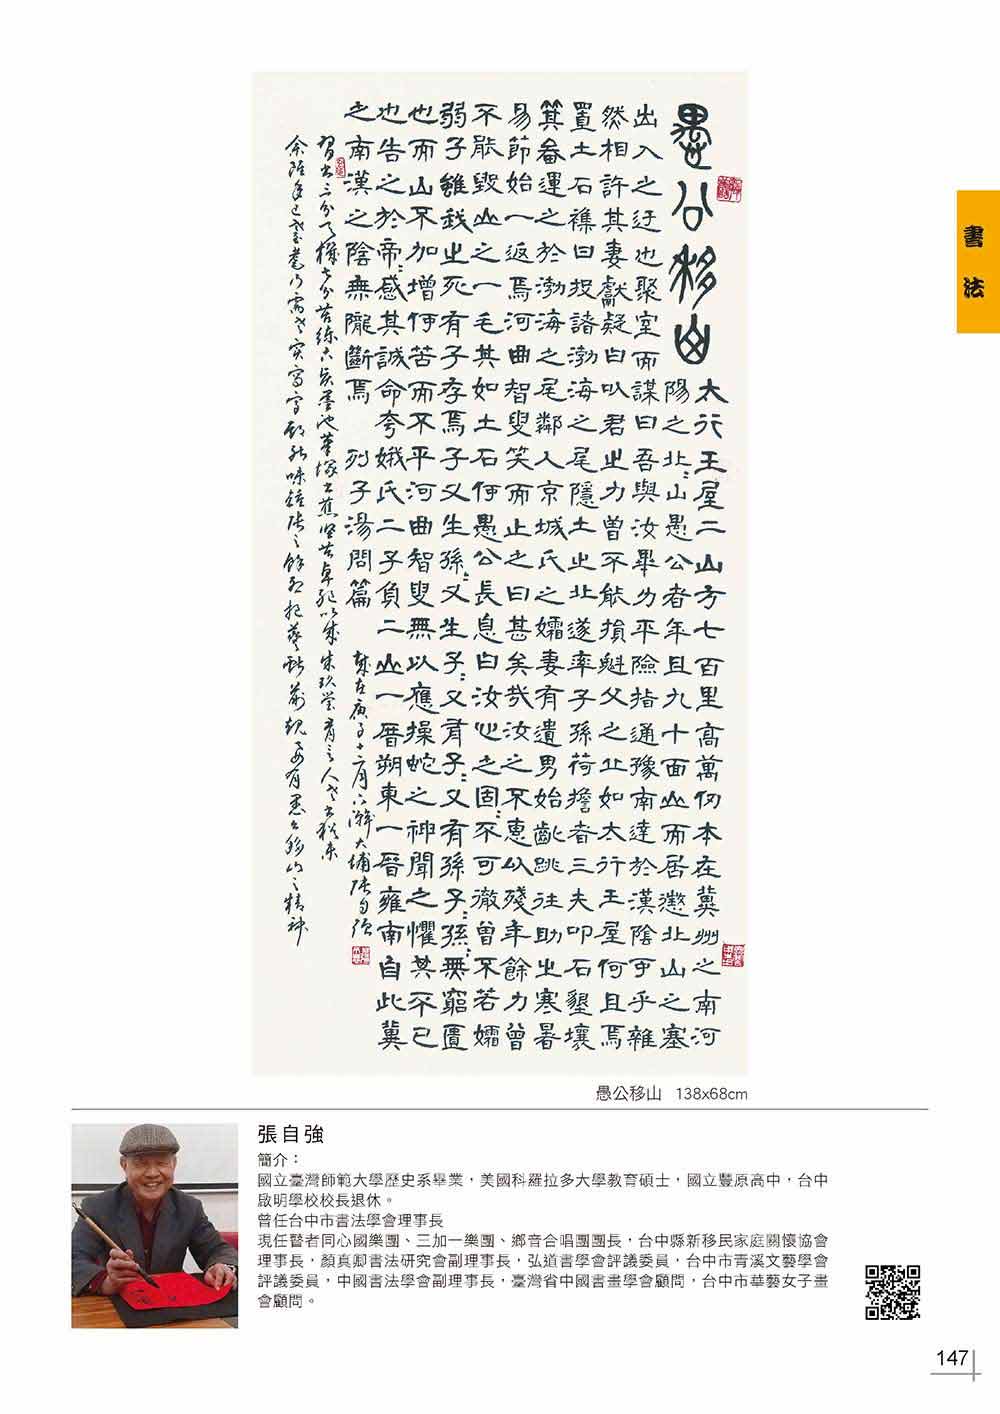 書法
愚公移山
太行王屋二山方七百里高萬仞本在冀州之南河
陽之北〻山愚公者年且九十面山而居懲北山之塞
出入之迂也聚室而謀曰吾與汝畢力平險指通豫南達於漢陰可乎雜
然相許其妻獻疑曰以君之力曾不能損魁父之丘如太行王屋何且焉
置土石襍曰投諸渤海之尾隱土之北遂率子孫荷擔者三夫叩石墾壤
箕畚運之於渤海之尾鄰人京城氏之孀妻有遺男始齔跳往助之寒暑
易節始一返焉河曲智叟笑而止之曰甚矣哉汝之不惠以殘年餘力曾
不能毀山之一毛其如土石何愚公長息曰汝心之固〻不可徹曾不若孀
弱子雖我之死有子存焉子又生孫〻又生子〻又有子〻又有孫子〻孫〻無窮匱
也而山不加增何苦而不平河曲智叟無以應操蛇之神聞之懼其不已
也告之於帝〻感其誠命夸娥氏二子負二山一厝朔東一厝雍南自此冀
之南漢之陰無隴斷焉 列子湯問篇
歲在庚子十二月 大埔張自強
習書三分天機七分苦練
愚公移山之精神
愚公移山 138x68cm
張自強
簡介：
國立臺灣師範大學歷史系畢業，美國科羅拉多大學教育碩士，國立豐原高中，台中
啟明學校校長退休。
曾任台中市書法學會理事長
現任瞽者同心國樂團、三加一樂團、鄉音合唱團團長，台中縣新移民家庭關懷協會
理事長，顏真卿書法研究會副理事長，弘道書學會評議委員，台中市青溪文藝學會
評議委員，中國書法學會副理事長，臺灣省中國書畫學會顧問，台中市華藝女子畫
會顧問。
147